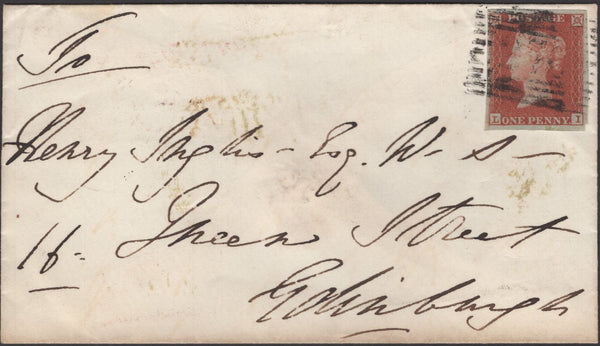 POSTAGE
L ONE PENNY. I
To
Henry Inglis - Esq. W. S -
16 - Queen Street
Edinburgh